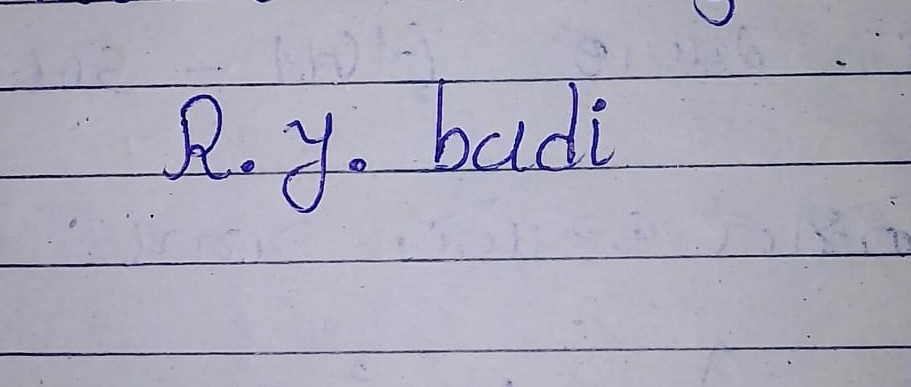 R. y. badi